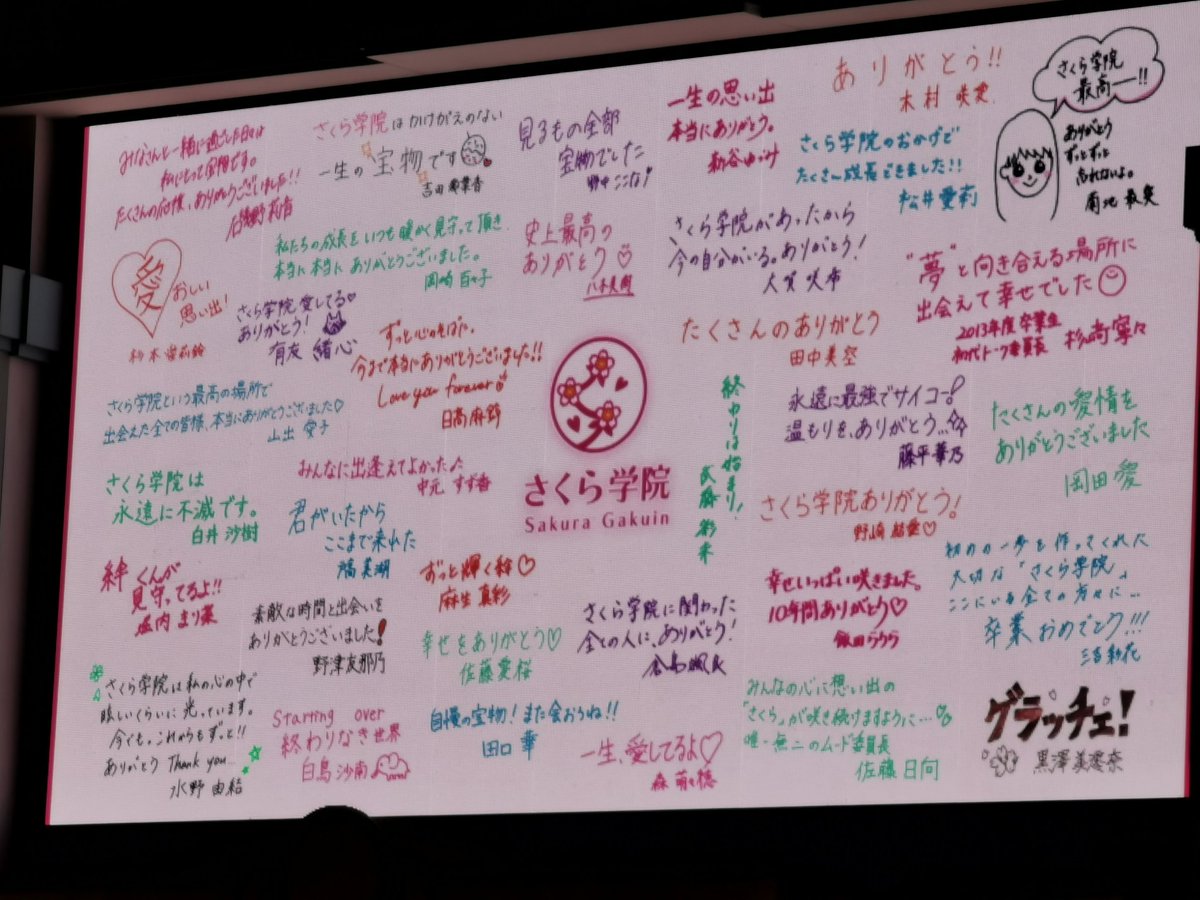 みなさんと一緒に過ごした日々は
私にとって宝物です。
たくさんの愛情、ありがとうございました!!
石綿野莉音
さくら学院はかけがえのない
一生の宝物です
吉田爽葉香
見るもの全部
宝物でした
野中ここな
一生の思い出
本当にありがとう。
新谷ゆづみ
ありがとう!!
木村咲愛
さくら学院のおかげで
たくさん成長できました!!
松井愛莉
さくら学院
最高ー!!
ありがとう
ずっとずっと
忘れないよ。
菊地最愛
愛おしい
思い出!
杉本愛莉鈴
私たちの成長をいつも暖かく見守って頂き
本当に本当にありがとうございました。
岡崎百々子
史上最高の
ありがとう♡
八木美樹
さくら学院があったから
今の自分がいる。ありがとう!
大賀咲希
"夢"と向き合える場所に
出会えて幸せでした
2013年度卒業生
初代トーク委員長 杉﨑寧々
さくら学院愛してる♡
ありがとう!
有友緒心
ずっと心のそばに。
今まで本当にありがとうございました!!
Love you forever
日髙麻鈴
たくさんのありがとう
田中美空
さくら学院という最高の場所で
出会えた全ての皆様、本当にありがとうございました♡
山出愛子
さくら学院
Sakura Gakuin
終わりは始まり!
武藤彩未
永遠に最強でサイコー!
温もりを、ありがとう…☆
藤平華乃
たくさんの愛情を
ありがとうございました
岡田愛
さくら学院は
永遠に不滅です。
白井沙樹
みんなに出逢えてよかった♪
中元すず香
君がいたから
ここまで来れた
𠮷田美湖
さくら学院ありがとう!
野崎結愛♡
絆くんが
見守ってるよ!!
堀内まり菜
素敵な時間と出会いを
ありがとうございました!
野津友那乃
ずっと輝く絆♡
麻生真彩
幸せをありがとう♡
佐藤愛桜
さくら学院に関わった
全ての人に、ありがとう!
倉島颯良
幸せいっぱい咲きました。
10年間ありがとう♡
飯田らうら
初めの一歩を作ってくれた
大切な「さくら学院」
ここにいる全ての方々に…
卒業おめでとう!!!
三吉彩花
さくら学院は私の心の中で
眩しいくらいに光っています。
今でも。これからもずっと!!
ありがとう Thank you…
水野由結
Starting over
終わりなき世界
白鳥沙南
自慢の宝物!また会おうね!!
田口華
一生、愛してるよ♡
森萌々穂
みんなの心に想い出の
「さくら」が咲き続けますように…
唯一無二のムード委員長
佐藤日向
グラッチェ!
黒澤美澪奈